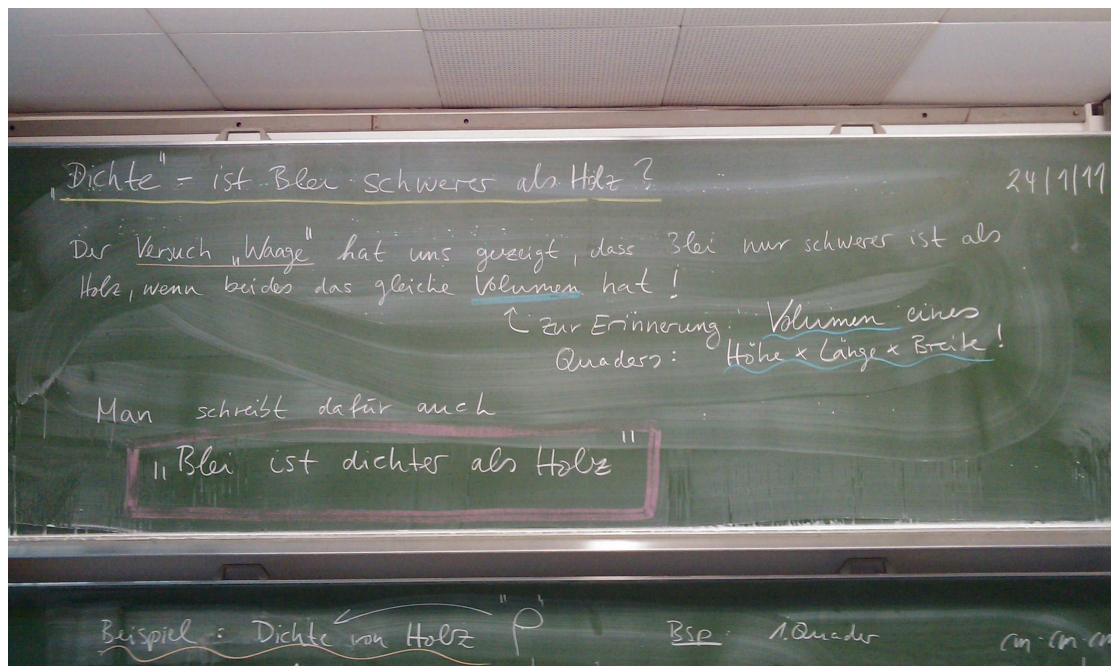 „Dichte" - ist Blei schwerer als Holz?
24/1/11
Der Versuch „Waage" hat uns gezeigt, dass Blei nur schwerer ist als
Holz, wenn beides das gleiche Volumen hat!
Zur Erinnerung: Volumen eines
Quaders: Höhe x Länge x Breite!
Man schreibt dafür auch
„Blei ist dichter als Holz"
Beispiel: Dichte von Holz "ρ"
Bsp: 1. Quader
cm · cm · cm